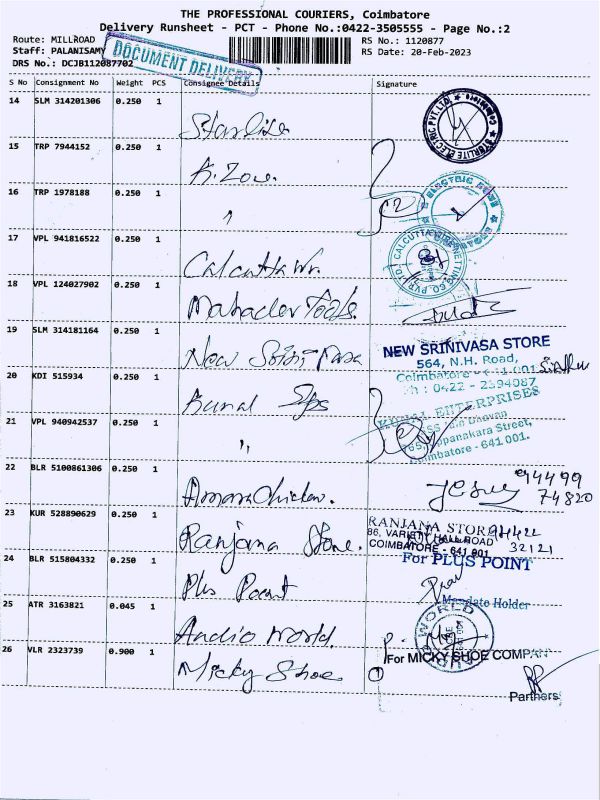 THE PROFESSIONAL COURIERS, Coimbatore
Delivery Runsheet - PCT - Phone No.:0422-3505555 - Page No.:2
Route: MILLROAD
RS No.: 1120877
Staff: PALANISAMY
RS Date: 20-Feb-2023
DRS No.: DCJB112087702
DOCUMENT DELIVERY
S No Consignment No Weight PCS Consignee Details Signature
14 SLM 314201306 0.250 1 Starlite
STERLITE ELECTRIC PVT. LTD.
15 TRP 7944152 0.250 1 A. Zone.
16 TRP 1978188 0.250 1 "
ELECTRIC ZONE
17 VPL 941816522 0.250 1 Calcutta Wr.
CALCUTTA
18 VPL 124027902 0.250 1 Mahadev Tools.
19 SLM 314181164 0.250 1 New Srini-vasa
NEW SRINIVASA STORE
564, N.H. Road,
Coimbatore - 641 001
Ph : 0422 - 2394087
20 KDI 515934 0.250 1 Kunal Eps
KUNAL ENTERPRISES
21 VPL 940942537 0.250 1 "
Coimbatore - 641 001.
22 BLR 5100861306 0.250 1 Amma Chicken.
94499
74820
23 KUR 528890629 0.250 1 Ranjana Store.
RANJANA STORE
86, VARIETY HALL ROAD
COIMBATORE - 641 001
32121
24 BLR 515804332 0.250 1 Plus Point
For PLUS POINT
Mandate Holder
25 ATR 3163821 0.045 1 Audio World.
WORLD
26 VLR 2323739 0.900 1 Micky Shoe
For MICKY SHOE COMPAN
Partners